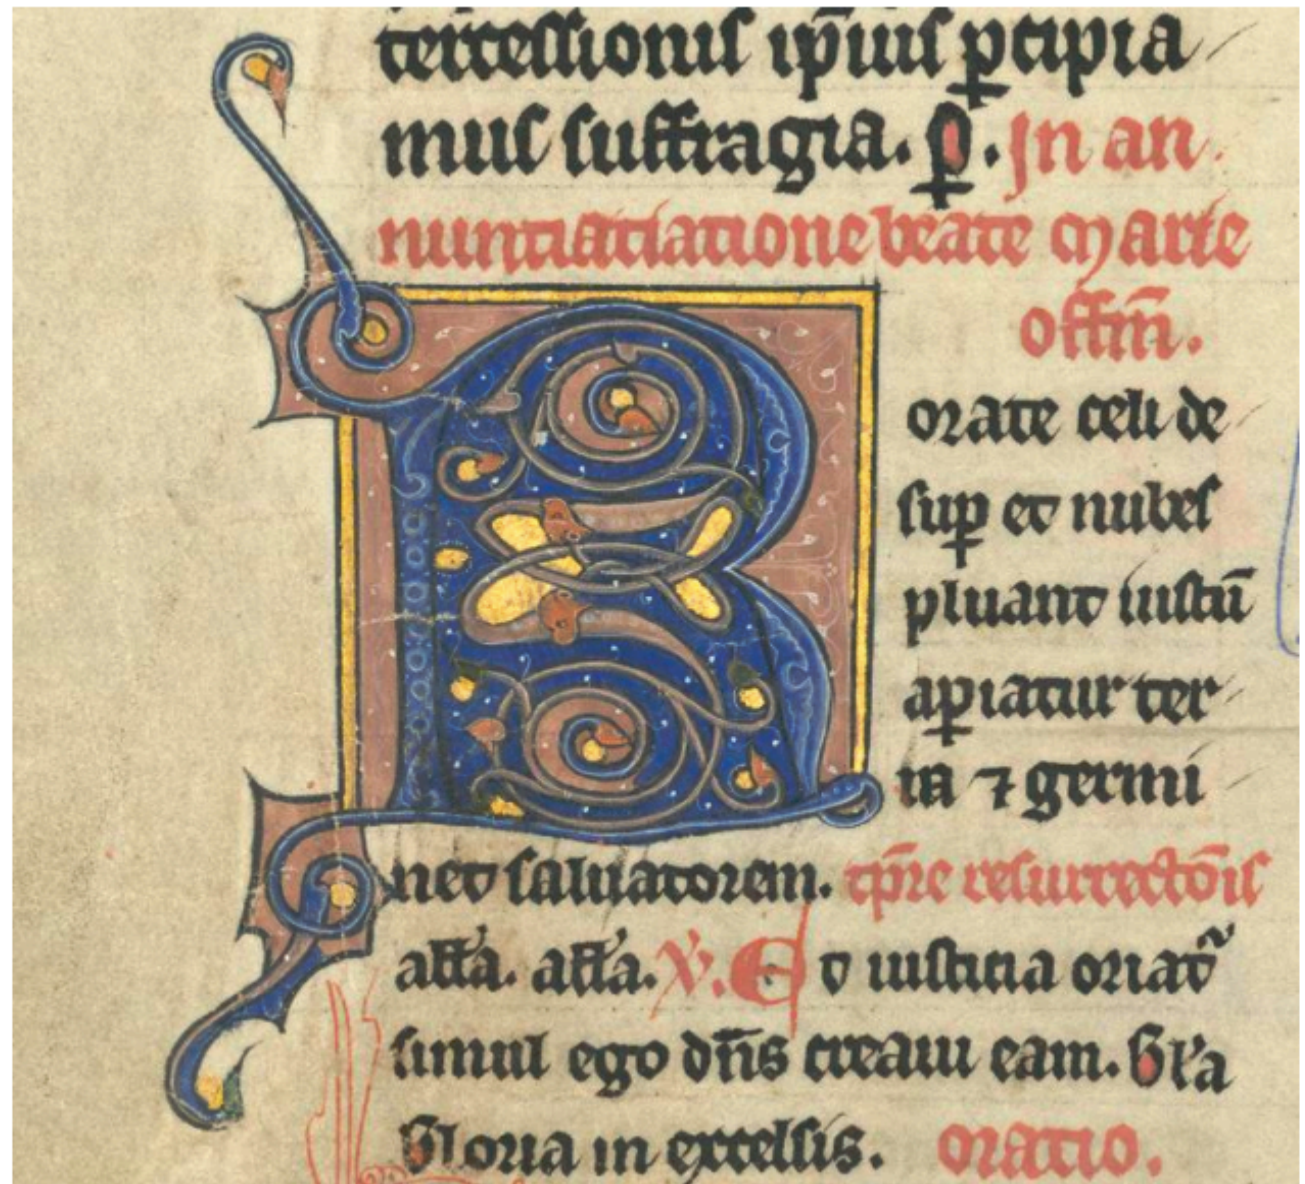 tercessionis ip̄ius ꝑcipia
mus suffragia. ꝑ. In an
nuntiatiatione beate marie
offm̄.
Rorate celi de
suꝑ et nubes
pluant iustū
aꝑiatur ter
ra ⁊ germi
net saluatorem. tp̄re resurrectōis
alła. alła. V. Et iusticia oriat᷑
simul ego dn̄s creaui eam. Gl'a
Gloria in excelsis. oratio.